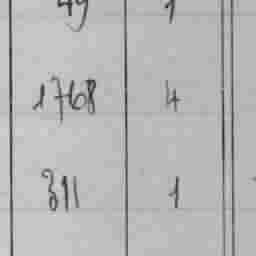 49 1
1768 4
311 1